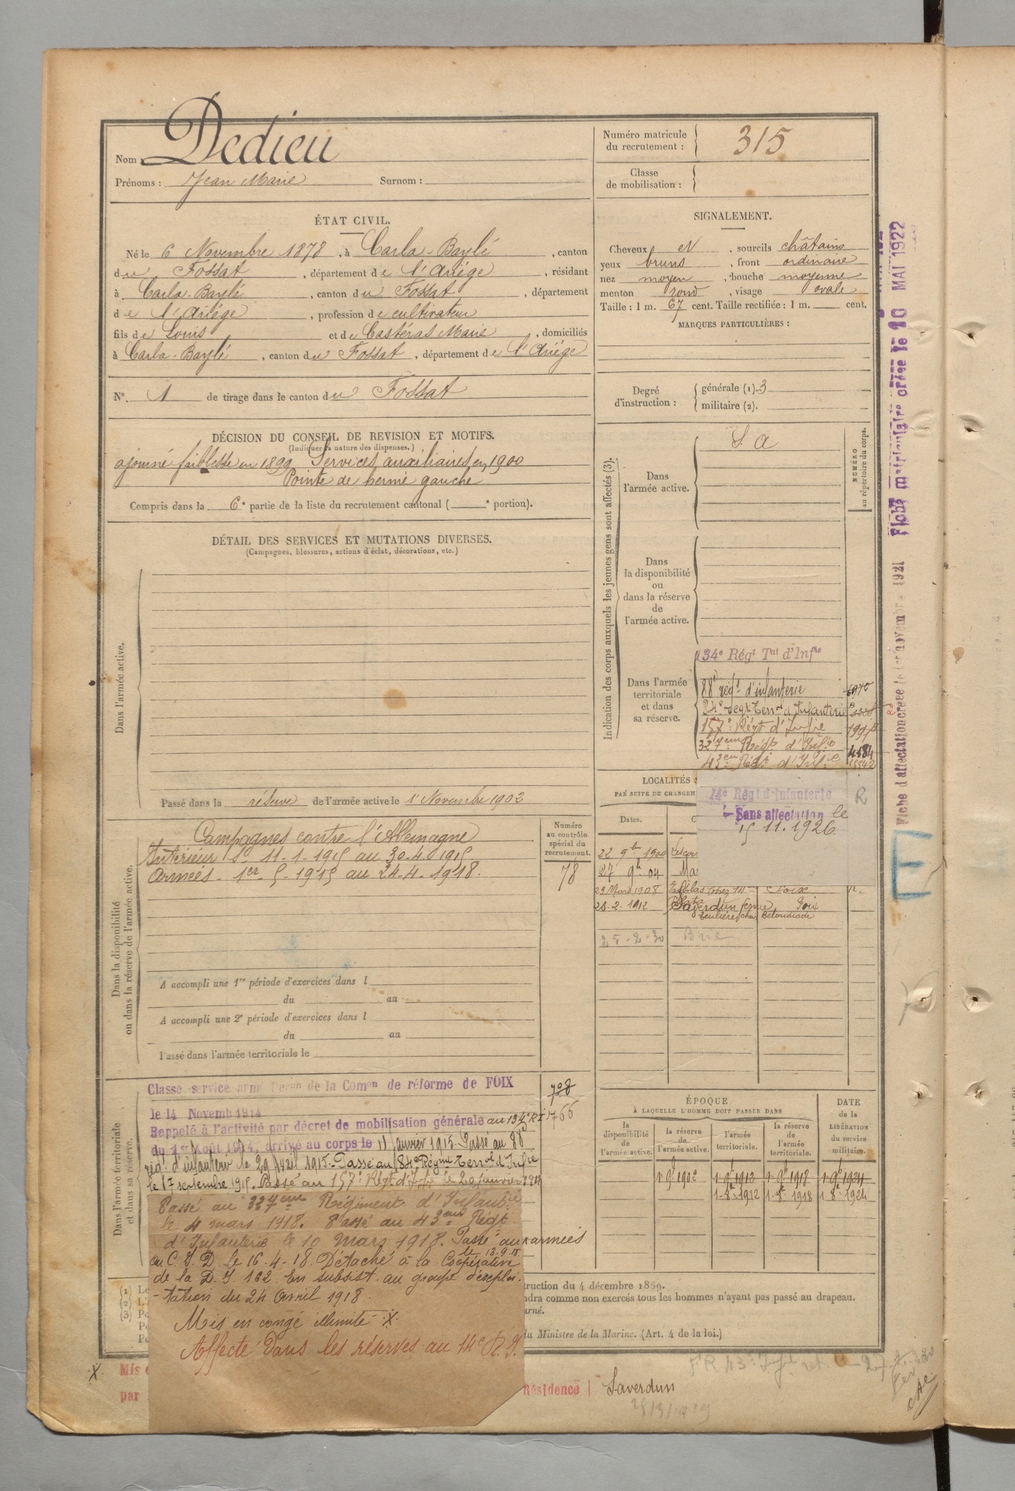 Nom Dedieu
Prénoms : Jean Marie Surnom :
Numéro matricule du recrutement : 315
Classe de mobilisation :
ÉTAT CIVIL.
Né le 6 Novembre 1878, à Carla-Baylé, canton
du Fossat, département de l'Ariège, résidant
à Carla-Baylé, canton du Fossat, département
de l'Ariège, profession de cultivateur
fils de Louis et de Castéras Marie, domiciliés
à Carla-Baylé, canton du Fossat, département de l'Ariège
N° 1 de tirage dans le canton du Fossat
SIGNALEMENT.
Cheveux et, sourcils châtains
yeux bruns, front ordinaire
nez moyen, bouche moyenne
menton rond, visage ovale
Taille : 1 m. 67 cent. Taille rectifiée : 1 m. cent.
MARQUES PARTICULIÈRES :
Degré d'instruction : générale (1). 3
militaire (2).
DÉCISION DU CONSEIL DE REVISION ET MOTIFS.
(Indiquer la nature des dispenses.)
ajourné faiblesse en 1899 Services auxiliaires en 1900
Pointe de hernie gauche
Compris dans la 6e partie de la liste du recrutement cantonal ( e portion).
DÉTAIL DES SERVICES ET MUTATIONS DIVERSES.
(Campagnes, blessures, actions d'éclat, décorations, etc.)
Dans l'armée active.
Passé dans la réserve de l'armée active le 1er Novembre 1902
Indication des corps auxquels les jeunes gens sont affectés (3).
NUMÉRO au répertoire du corps.
Dans l'armée active.
S a
Dans la disponibilité ou dans la réserve de l'armée active.
Dans l'armée territoriale et dans sa réserve.
34e Régt Tal d'Infie
88e régt d'infanterie
157e Régt d'Infie
327eme Régt d'Infie 4584
43eme Régt d'Infie
14e Régt d'Infanterie R
Sans affectation le
15.11.1926
LOCALITÉS
PAR SUITE DE CHANGEM
Dates.
22 9bre 1900
27 9bre 04 Ma
22 Mars 1908 Foix
28-2-1912 Saverdun Foix
25-2-30 Brie
Dans la disponibilité ou dans la réserve de l'armée active.
Campagnes contre l'Allemagne
Intérieur du 11-1-1915 au 30-4-1915
Armées. 1er-5-1915 au 24-4-1918.
Numéro au contrôle spécial du recrutement.
78
A accompli une 1re période d'exercices dans l
du au
A accompli une 2e période d'exercices dans l
du au
Passé dans l'armée territoriale le
Dans l'armée territoriale et dans sa réserve.
Classé service armé Décon de la Comon de réforme de FOIX
le 14 Novemb 1914
708
Rappelé à l'activité par décret de mobilisation générale au 134e RI 1766
du 1er Août 1914, arrivé au corps le 11 janvier 1915. Passé au 88
régt d'infanterie le 29 1915. Passé au 84e Régiment Territ d'Infie
le 17 septembre 1915. Passé au 157e Régt d'Infie le 20 janvier
Passé au 327eme Régiment d'Infantie
le 4 mars 1918. Passé au 43eme Régt
d'Infanterie le 10 mars 1918. Passé aux armées
au C.I.D. le 16-4-18. Détaché à la Coopérative
le 13.9.18
de la D.I 162. En subsist. au groupe d'exploi-
-tation du 24 Avril 1918
Mis en congé illimité X
Affecté dans les réserves au 14e R.I.
ÉPOQUE
À LAQUELLE L'HOMME DOIT PASSER DANS
la disponibilité de l'armée active.
la réserve de l'armée active.
l'armée territoriale.
la réserve de l'armée territoriale.
DATE de la LIBÉRATION du service militaire.
1-9bre 1902 1-9bre 1912 1-9bre 1918 1-9bre 1924
1-8bre 1912 1-8bre 1918 1-8bre 1924
ruction du 4 décembre 1889.
ndra comme non exercés tous les hommes n'ayant pas passé au drapeau.
u Ministre de la Marine. (Art. 4 de la loi.)
X Mis
par
Résidence Saverdun
Fiche matriculaire créée le 10 MAI 1922
Fiche d'affectation créée le 1er novembre 1921
E